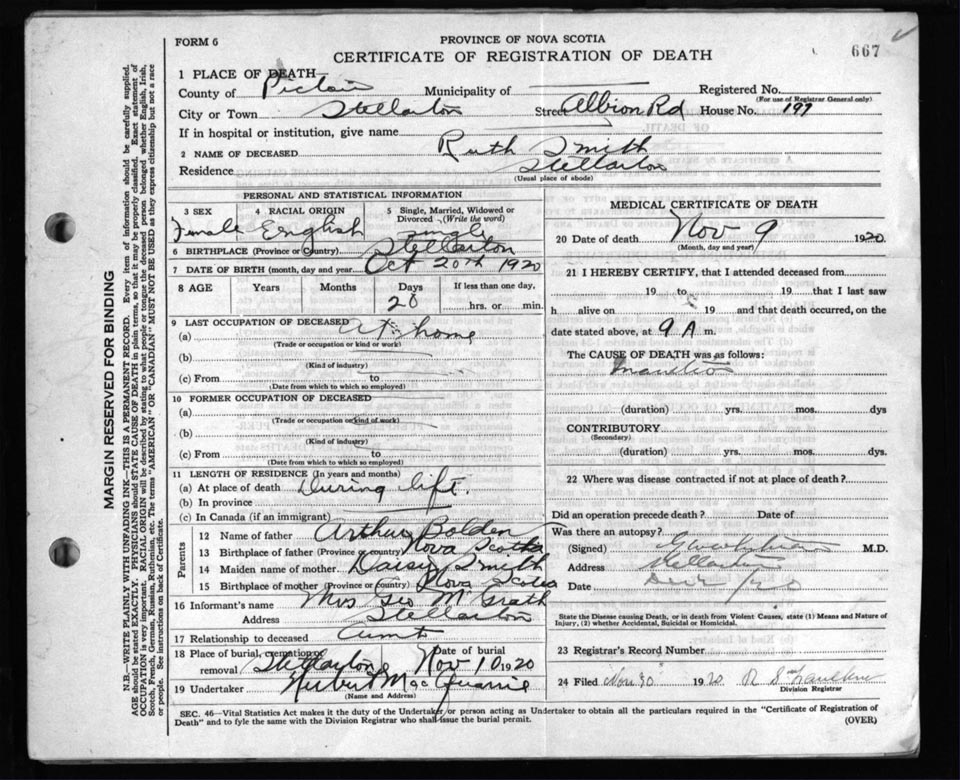 FORM 6
PROVINCE OF NOVA SCOTIA
CERTIFICATE OF REGISTRATION OF DEATH
667
1 PLACE OF DEATH—
County of Pictou Municipality of Registered No.
(For use of Registrar General only)
City or Town Stellarton Street Albion Rd House No. 197
If in hospital or institution, give name
2 NAME OF DECEASED Ruth Smith
Residence Stellarton
(Usual place of abode)
MARGIN RESERVED FOR BINDING
N.B.—WRITE PLAINLY WITH UNFADING INK—THIS IS A PERMANENT RECORD. Every item of information should be carefully supplied.
AGE should be stated EXACTLY. PHYSICIANS should STATE CAUSE OF DEATH in plain terms, so that it may be properly classified. Exact statement of
OCCUPATION is very important. RACIAL ORIGIN will be described by stating to what people or tongue the deceased person belonged whether English, Irish,
Scotch, French, German, Russian, Ruthenian, etc. The terms "AMERICAN" OR "CANADIAN" MUST NOT BE USED as they express citizenship but not a race
or people. See instructions on back of Certificate.
PERSONAL AND STATISTICAL INFORMATION
3 SEX 4 RACIAL ORIGIN 5 Single, Married, Widowed or
Divorced (Write the word)
Female English single
6 BIRTHPLACE (Province or Country) Stellarton
7 DATE OF BIRTH (month, day and year) Oct 20th 1920
8 AGE Years Months Days If less than one day,
20 hrs. or min.
9 LAST OCCUPATION OF DECEASED
(a) At home
(Trade or occupation or kind or work)
(b)
(Kind of industry)
(c) From to
(Date from which to which so employed)
10 FORMER OCCUPATION OF DECEASED
(a)
(Trade or occupation or kind of work)
(b)
(Kind of industry)
(c) From to
(Date from which to which so employed)
11 LENGTH OF RESIDENCE (In years and months)
(a) At place of death During lift.
(b) In province
(c) In Canada (if an immigrant)
Parents
12 Name of father Arthur Bolden
13 Birthplace of father (Province or country) Nova Scotia
14 Maiden name of mother Daisy Smith
15 Birthplace of mother (Province or Country) Nova Scotia
16 Informant's name Mrs Geo McGrath
Address Stellarton
17 Relationship to deceased Aunt
18 Place of burial, cremation or Date of burial
removal Stellarton Nov 10 1920
19 Undertaker MacQuarrie
(Name and Address)
MEDICAL CERTIFICATE OF DEATH
20 Date of death Nov 9 1920
(Month, day and year)
21 I HEREBY CERTIFY, that I attended deceased from
19 to 19 that I last saw
h alive on 19 and that death occurred, on the
date stated above, at 9 A m.
The CAUSE OF DEATH was as follows:
(duration) yrs. mos. dys
CONTRIBUTORY
(Secondary)
(duration) yrs. mos. dys.
22 Where was disease contracted if not at place of death?
Did an operation precede death? Date of
Was there an autopsy?
(Signed) M.D.
Address Stellarton
Date
State the Disease causing Death, or in Death from Violent Causes, state (1) Means and Nature of
Injury, (2) whether Accidental, Suicidal or Homicidal.
23 Registrar's Record Number
24 Filed Nov 30 1920
Division Registrar
SEC. 46—Vital Statistics Act makes it the duty of the Undertaker or person acting as Undertaker to obtain all the particulars required in the "Certificate of Registration of
Death" and to fyle the same with the Division Registrar who shall issue the burial permit.
(OVER)